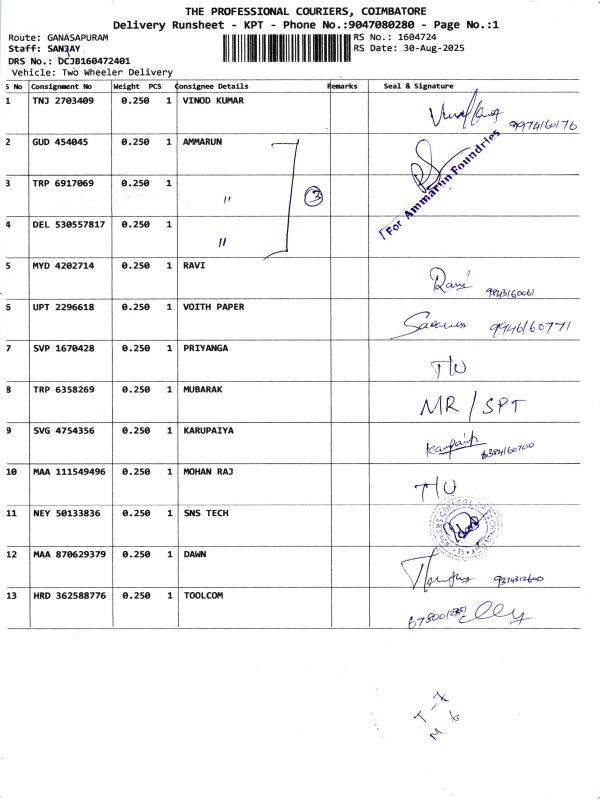 THE PROFESSIONAL COURIERS, COIMBATORE
Delivery Runsheet - KPT - Phone No.:9047080280 - Page No.:1
Route: GANASAPURAM
RS No.: 1604724
Staff: SANJAY
RS Date: 30-Aug-2025
DRS No.: DCJB160472401
Vehicle: Two Wheeler Delivery
S No Consignment No Weight PCS Consignee Details Remarks Seal & Signature
1 TNJ 2703409 0.250 1 VINOD KUMAR
2 GUD 454045 0.250 1 AMMARUN
For Ammarun Foundries
3 TRP 6917069 0.250 1 " 3
4 DEL 530557817 0.250 1 "
5 MYD 4202714 0.250 1 RAVI Ravi
6 UPT 2296618 0.250 1 VOITH PAPER
7 SVP 1670428 0.250 1 PRIYANGA T/U
8 TRP 6358269 0.250 1 MUBARAK MR/SPT
9 SVG 4754356 0.250 1 KARUPAIYA
10 MAA 111549496 0.250 1 MOHAN RAJ T/U
11 NEY 50133836 0.250 1 SNS TECH
12 MAA 870629379 0.250 1 DAWN
13 HRD 362588776 0.250 1 TOOLCOM
T - 7
M 6